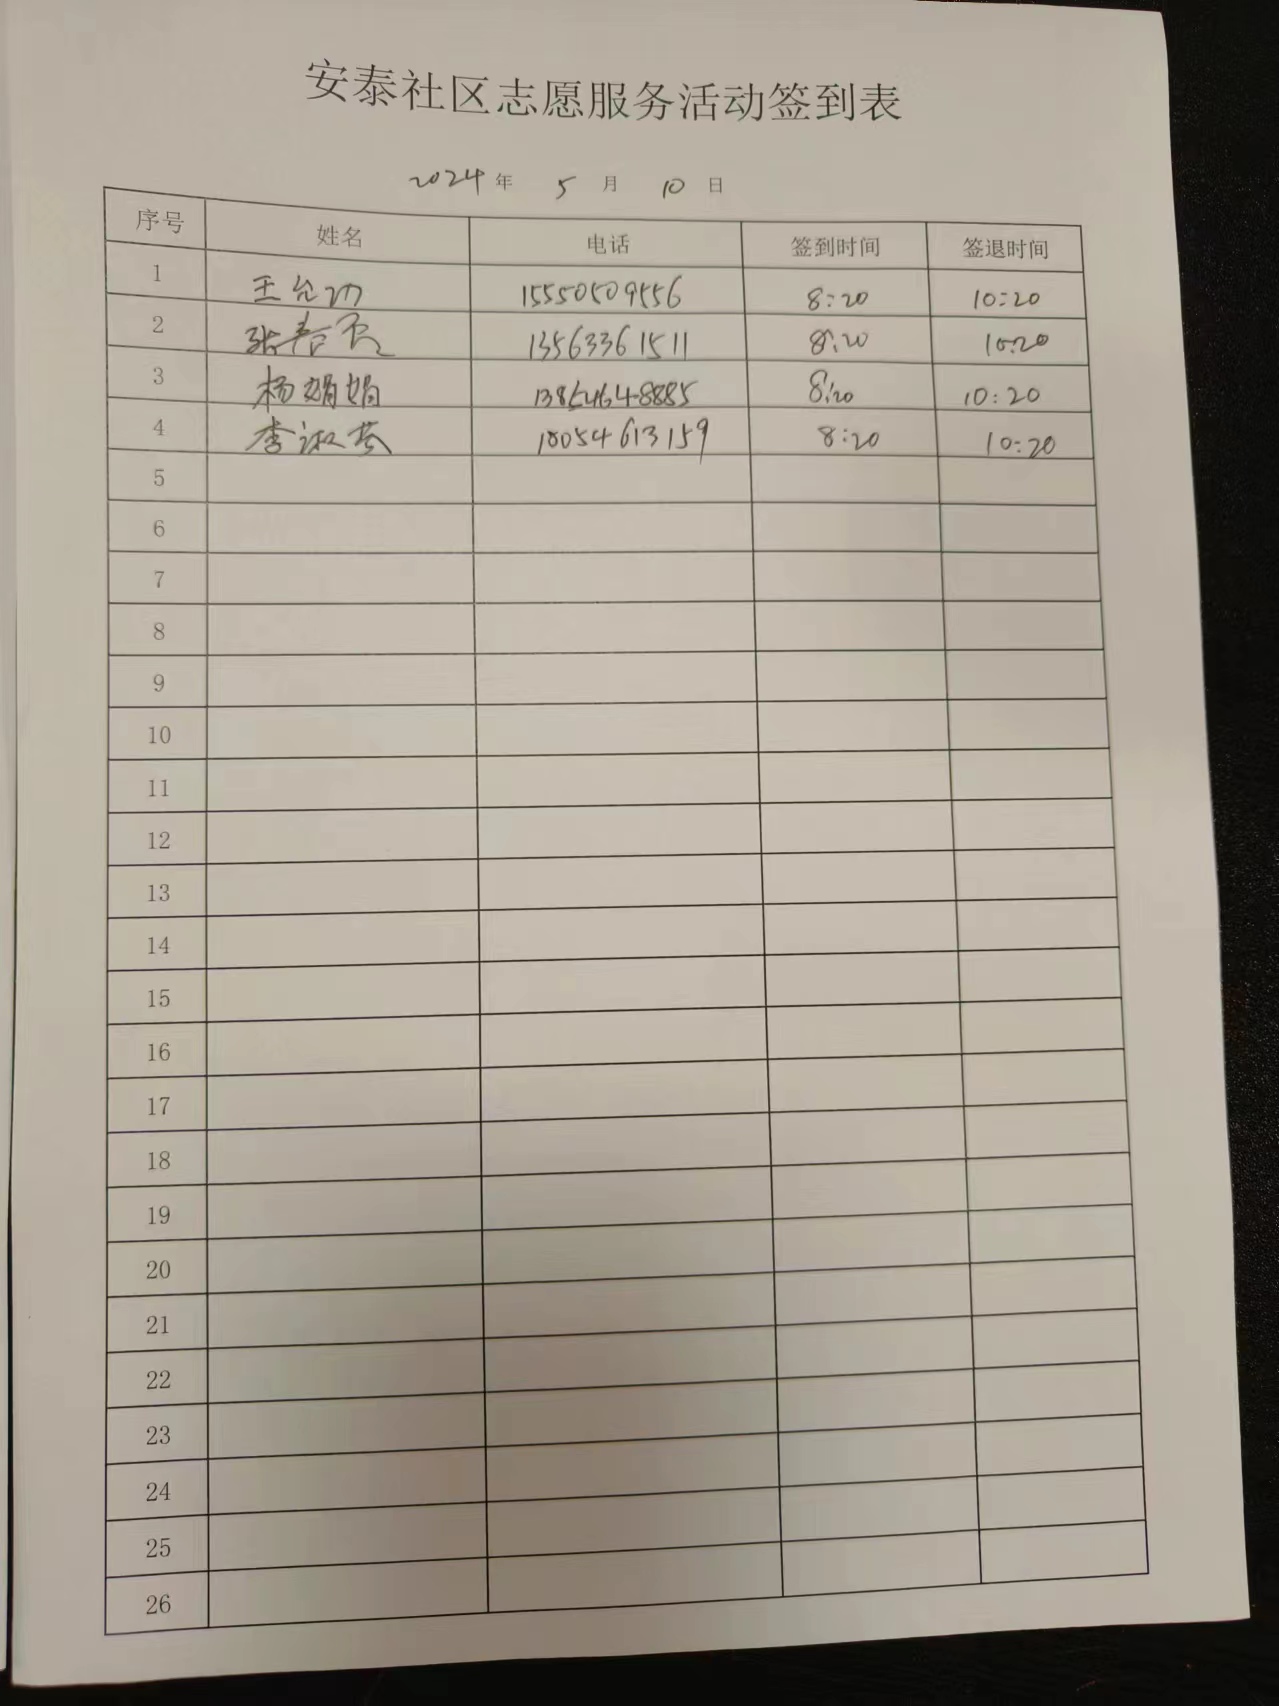 安泰社区志愿服务活动签到表
2024年 5月 10日
序号 姓名 电话 签到时间 签退时间
1 王允功 15550509556 8:20 10:20
2 张春 13563361511 8:20 10:20
3 杨娟娟 13854648885 8:20 10:20
4 李淑英 18054613159 8:20 10:20
5
6
7
8
9
10
11
12
13
14
15
16
17
18
19
20
21
22
23
24
25
26